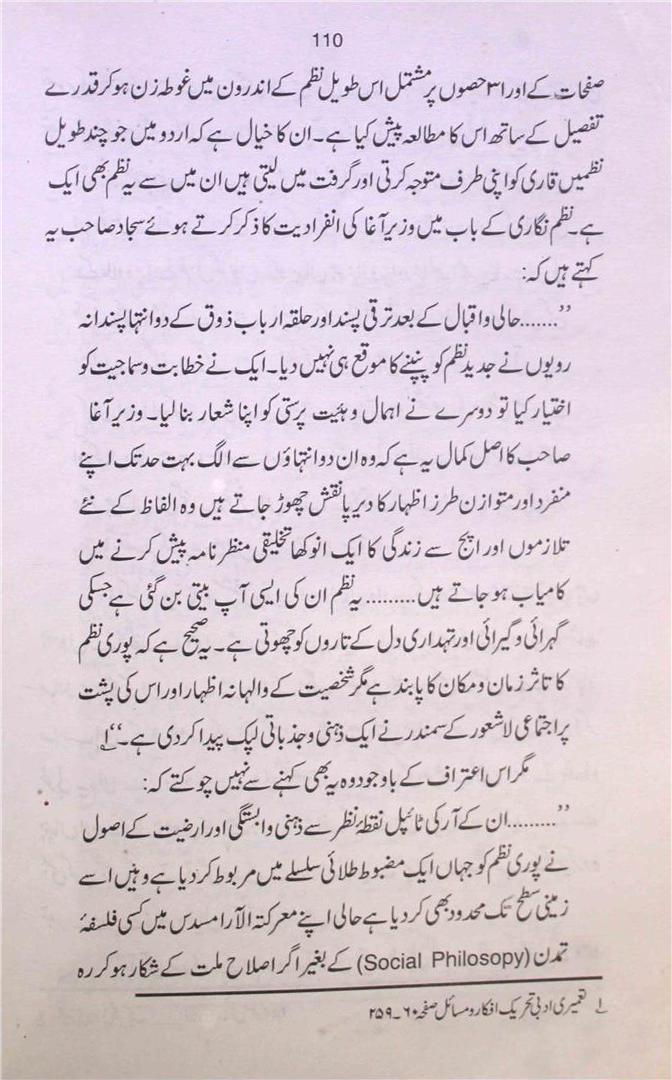 110
صفحات کے اور ۳۱ حصوں پر مشتمل اس طویل نظم کے اندرون میں غوطہ زن ہو کر قدرے
تفصیل کے ساتھ اس کا مطالعہ پیش کیا ہے۔ ان کا خیال ہے کہ اردو میں جو چند طویل
نظمیں قاری کو اپنی طرف متوجہ کرتی اور گرفت میں لیتی ہیں ان میں سے یہ نظم بھی ایک
ہے۔ نظم نگاری کے باب میں وزیر آغا کی انفرادیت کا ذکر کرتے ہوئے سجاد صاحب یہ
کہتے ہیں کہ:
”.......حالی و اقبال کے بعد ترقی پسند اور حلقہ ارباب ذوق کے دو انتہا پسندانہ
رویوں نے جدید نظم کو پنپنے کا موقع ہی نہیں دیا۔ ایک نے خطابت و سماجیت کو
اختیار کیا تو دوسرے نے اہمال و ہئیت پرستی کو اپنا شعار بنا لیا۔ وزیر آغا
صاحب کا اصل کمال یہ ہے کہ وہ ان دو انتہاؤں سے الگ بہت حد تک اپنے
منفرد اور متوازن طرز اظہار کا دیرپا نقش چھوڑ جاتے ہیں وہ الفاظ کے نئے
تلازموں اور اپج سے زندگی کا ایک انوکھا تخلیقی منظر نامہ پیش کرنے میں
کامیاب ہو جاتے ہیں.........یہ نظم ان کی ایسی آپ بیتی بن گئی ہے جسکی
گہرائی و گیرائی اور تہداری دل کے تاروں کو چھوتی ہے۔ یہ صحیح ہے کہ پوری نظم
کا تاثر زمان و مکان کا پابند ہے مگر شخصیت کے والہانہ اظہار اور اس کی پشت
پر اجتماعی لاشعور کے سمندر نے ایک ذہنی و جذباتی لپک پیدا کر دی ہے۔“۱
مگر اس اعتراف کے باوجود وہ یہ بھی کہنے سے نہیں چوکتے کہ:
”.........ان کے آر کی ٹائپل نقطۂ نظر سے ذہنی وابستگی اور ارضیت کے اصول
نے پوری نظم کو جہاں ایک مضبوط طلائی سلسلے میں مربوط کر دیا ہے وہیں اسے
زمینی سطح تک محدود بھی کر دیا ہے حالی اپنے معرکتہ الآرا مسدس میں کسی فلسفۂ
تمدن (Social Philosopy) کے بغیر اگر اصلاح ملت کے شکار ہو کر رہ
۱ تعمیری ادبی تحریک افکار و مسائل صفحہ ۶۰۔۲۵۹